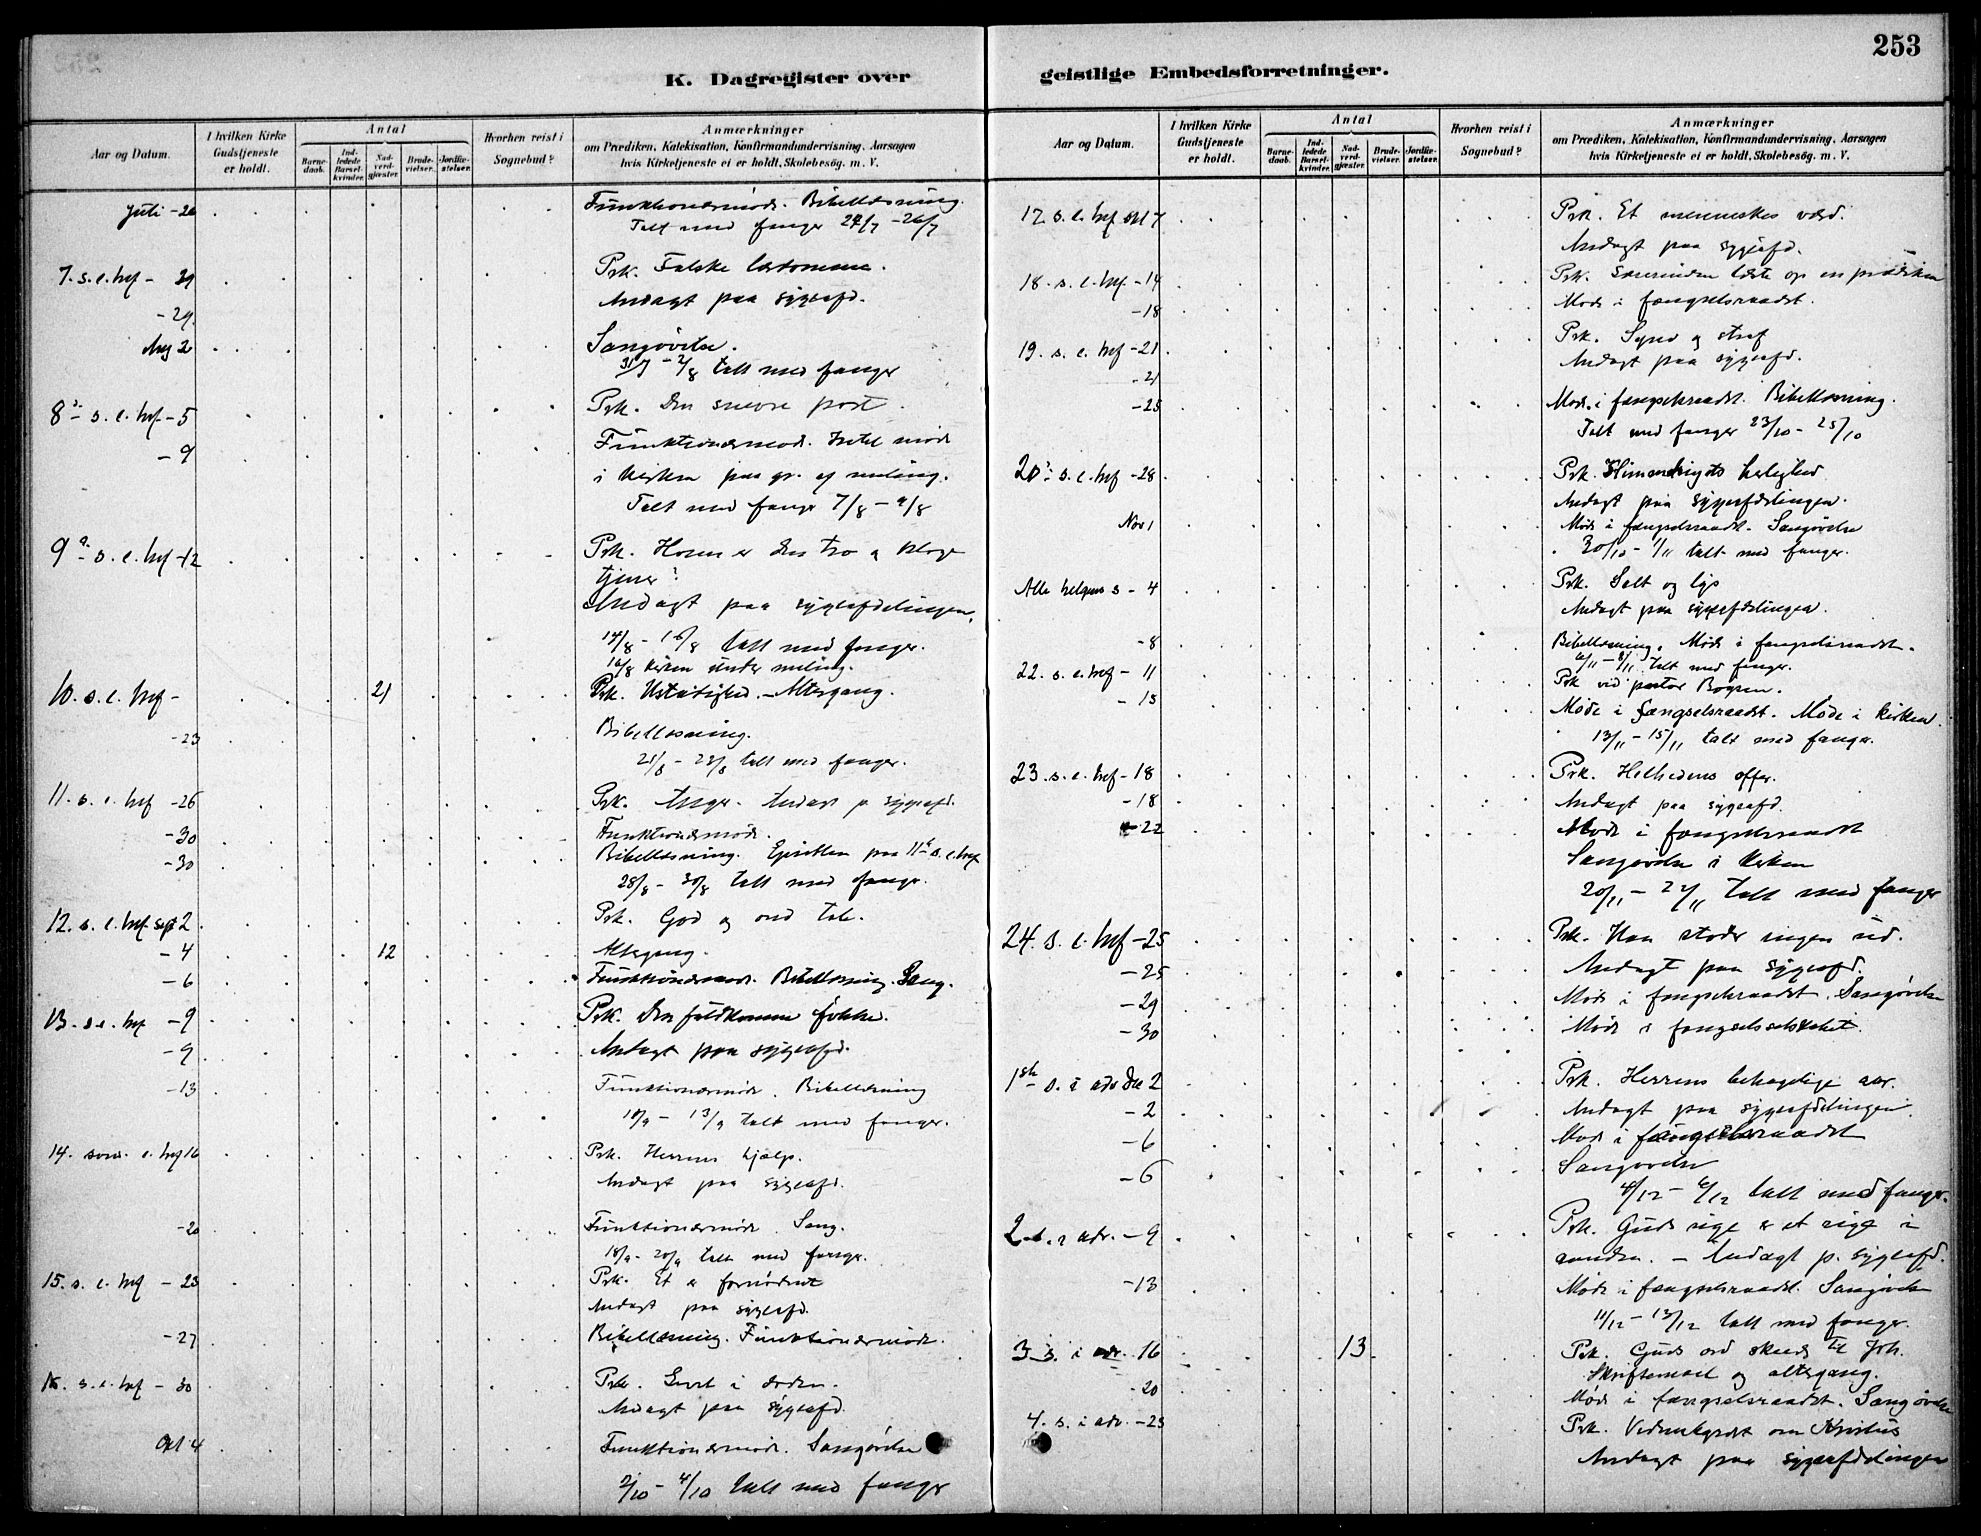 253
K. Dagregister over
geistlige Embedsforretninger.
Aar og Datum.
I hvilken Kirke Gudstjeneste er holdt.
Antal
Barnedaab.
Indledede Barselkvinder.
Nadverdgjæster.
Brudevielser.
Jordfæstelser.
Hvorhen reist i Sognebud?
Anmærkninger
om Prædiken, Katekisation, Konfirmandundervisning, Aarsagen
hvis Kirketjeneste ei er holdt, Skolebesög. m. V.
Juli - 26 Funktionærmöde. Bibellæsning.
Talt med fanger 24/7 - 26/7
7. s. e. tref - 29 Prk. Falske
Andagt paa sygeafd.
- 29
Aug 2 Sangövelse.
31/7 - 2/8 talt med fanger
8de s. e. tref - 5 Prk. Den snevre port.
- 9 Funktionærmöde. Intet möde
i kirken paa gr. af maling.
Talt med fanger 7/8 - 9/8
9de s. e. tref - 12 Prk. Hvem er den tro og kloge
tjener?
Andagt paa sygeafdelingen.
14/8 - 16/8 talt med fanger.
16/8 kirken under maling.
10. s. e. tref - 21 Prk. - Altergang.
- 23 Bibellæsning.
21/8 - 23/8 talt med fanger.
11. s. e. tref - 26 Prk. Anger. Andagt p. sygeafd.
- 30 Funktionærmöde.
- 30 Bibellæsning. Epistlen paa 11te s. e. tref
28/8 - 30/8 talt med fanger.
12. s. e. tref sept 2 Prk. God og ond tale.
- 4 12 Altergang.
- 6 Funktionærmöde. Bibellæsning. Sang.
13. s. e. tref - 9 Prk. Den fuldkomne
- 9 Andagt paa sygeafd.
- 13 Funktionærmöde. Bibellæsning
- 13/9 talt med fanger.
14. sönd. e. tref 16 Prk. Herrens hjælp.
Andagt paa sygeafd.
- 20 Funktionærmöde. Sang.
18/9 - 20/9 talt med fanger.
15. s. e. tref - 23 Prk. Et er fornödent
Andagt paa sygeafd.
- 27 Bibellæsning. Funktionærmöde.
16. s. e. tref - 30 Prk. Livet i döden.
Andagt paa sygeafd.
Okt 4 Funktionærmöde. Sangövelse
2/10 - 4/10 talt med fanger
Aar og Datum.
I hvilken Kirke Gudstjeneste er holdt.
Antal
Barnedaab.
Indledede Barselkvinder.
Nadverdgjæster.
Brudevielser.
Jordfæstelser.
Hvorhen reist i Sognebud?
Anmærkninger
om Prædiken, Katekisation, Konfirmandundervisning, Aarsagen
hvis Kirketjeneste ei er holdt, Skolebesög. m. V.
17. s. e. tref okt 7 Prk. Et menneskes værd.
Andagt paa sygeafd.
18. s. e. tref - 14 Prk. læste op en prædiken
- 18 Möde i fængselsraadet.
19. s. e. tref - 21 Prk. Synd og straf
- 21 Andagt paa sygeafd.
- 25 Möde i fængselsraadet. Bibellæsning.
Talt med fanger 23/10 - 25/10
20de s. e. tref - 28 Prk. Himmerigets herlighed
Andagt paa sygeafdelingen.
Nov 1 Möde i fængselsraadet. Sangövelse
30/10 - 1/11 talt med fanger.
Alle helgens s - 4 Prk. Salt og lys
Andagt paa sygeafdelingen.
- 8 Bibellæsning. Möde i fængselsraadet.
6/11 - 8/11 talt med fanger.
22. s. e. tref - 11 Prk ved pastor
- 15 Möde i fængselsraadet. Möde i kirken.
13/11 - 15/11 talt med fanger.
23. s. e. tref - 18 Prk. Helhedens offer.
- 18 Andagt paa sygeafd.
- 22 Möde i fængselsraadet
Sangövelse i kirken
20/11 - 22/11 talt med fanger
24. s. e. tref - 25 Prk. Han stöder ingen ud.
- 25 Andagt paa sygeafd.
- 29 Möde i fængselsraadet. Sangövelse
- 30 Möde i fængselsselskabet.
1ste s. i adv Dec 2 Prk. Herrens behagelige aar.
- 2 Andagt paa sygeafdelingen.
- 6 Möde i fængselsraadet
- 6 Sangövelse
4/12 - 6/12 talt med fanger.
2. s. i adv. - 9 Prk. Guds rige er et rige i
aanden. - Andagt p. sygeafd.
- 13 Möde i fængselsraadet. Sangövelse
11/12 - 13/12 talt med fanger.
3 s. i adv. 16 13 Prk. Guds ord skede til Joh.
Skriftemaal og altergang.
- 20 Möde i fængselsraadet. Sangövelse
4. s. i adv. - 23 Prk. Vidnesbyrdet om Kristus
Andagt paa sygeafdelingen